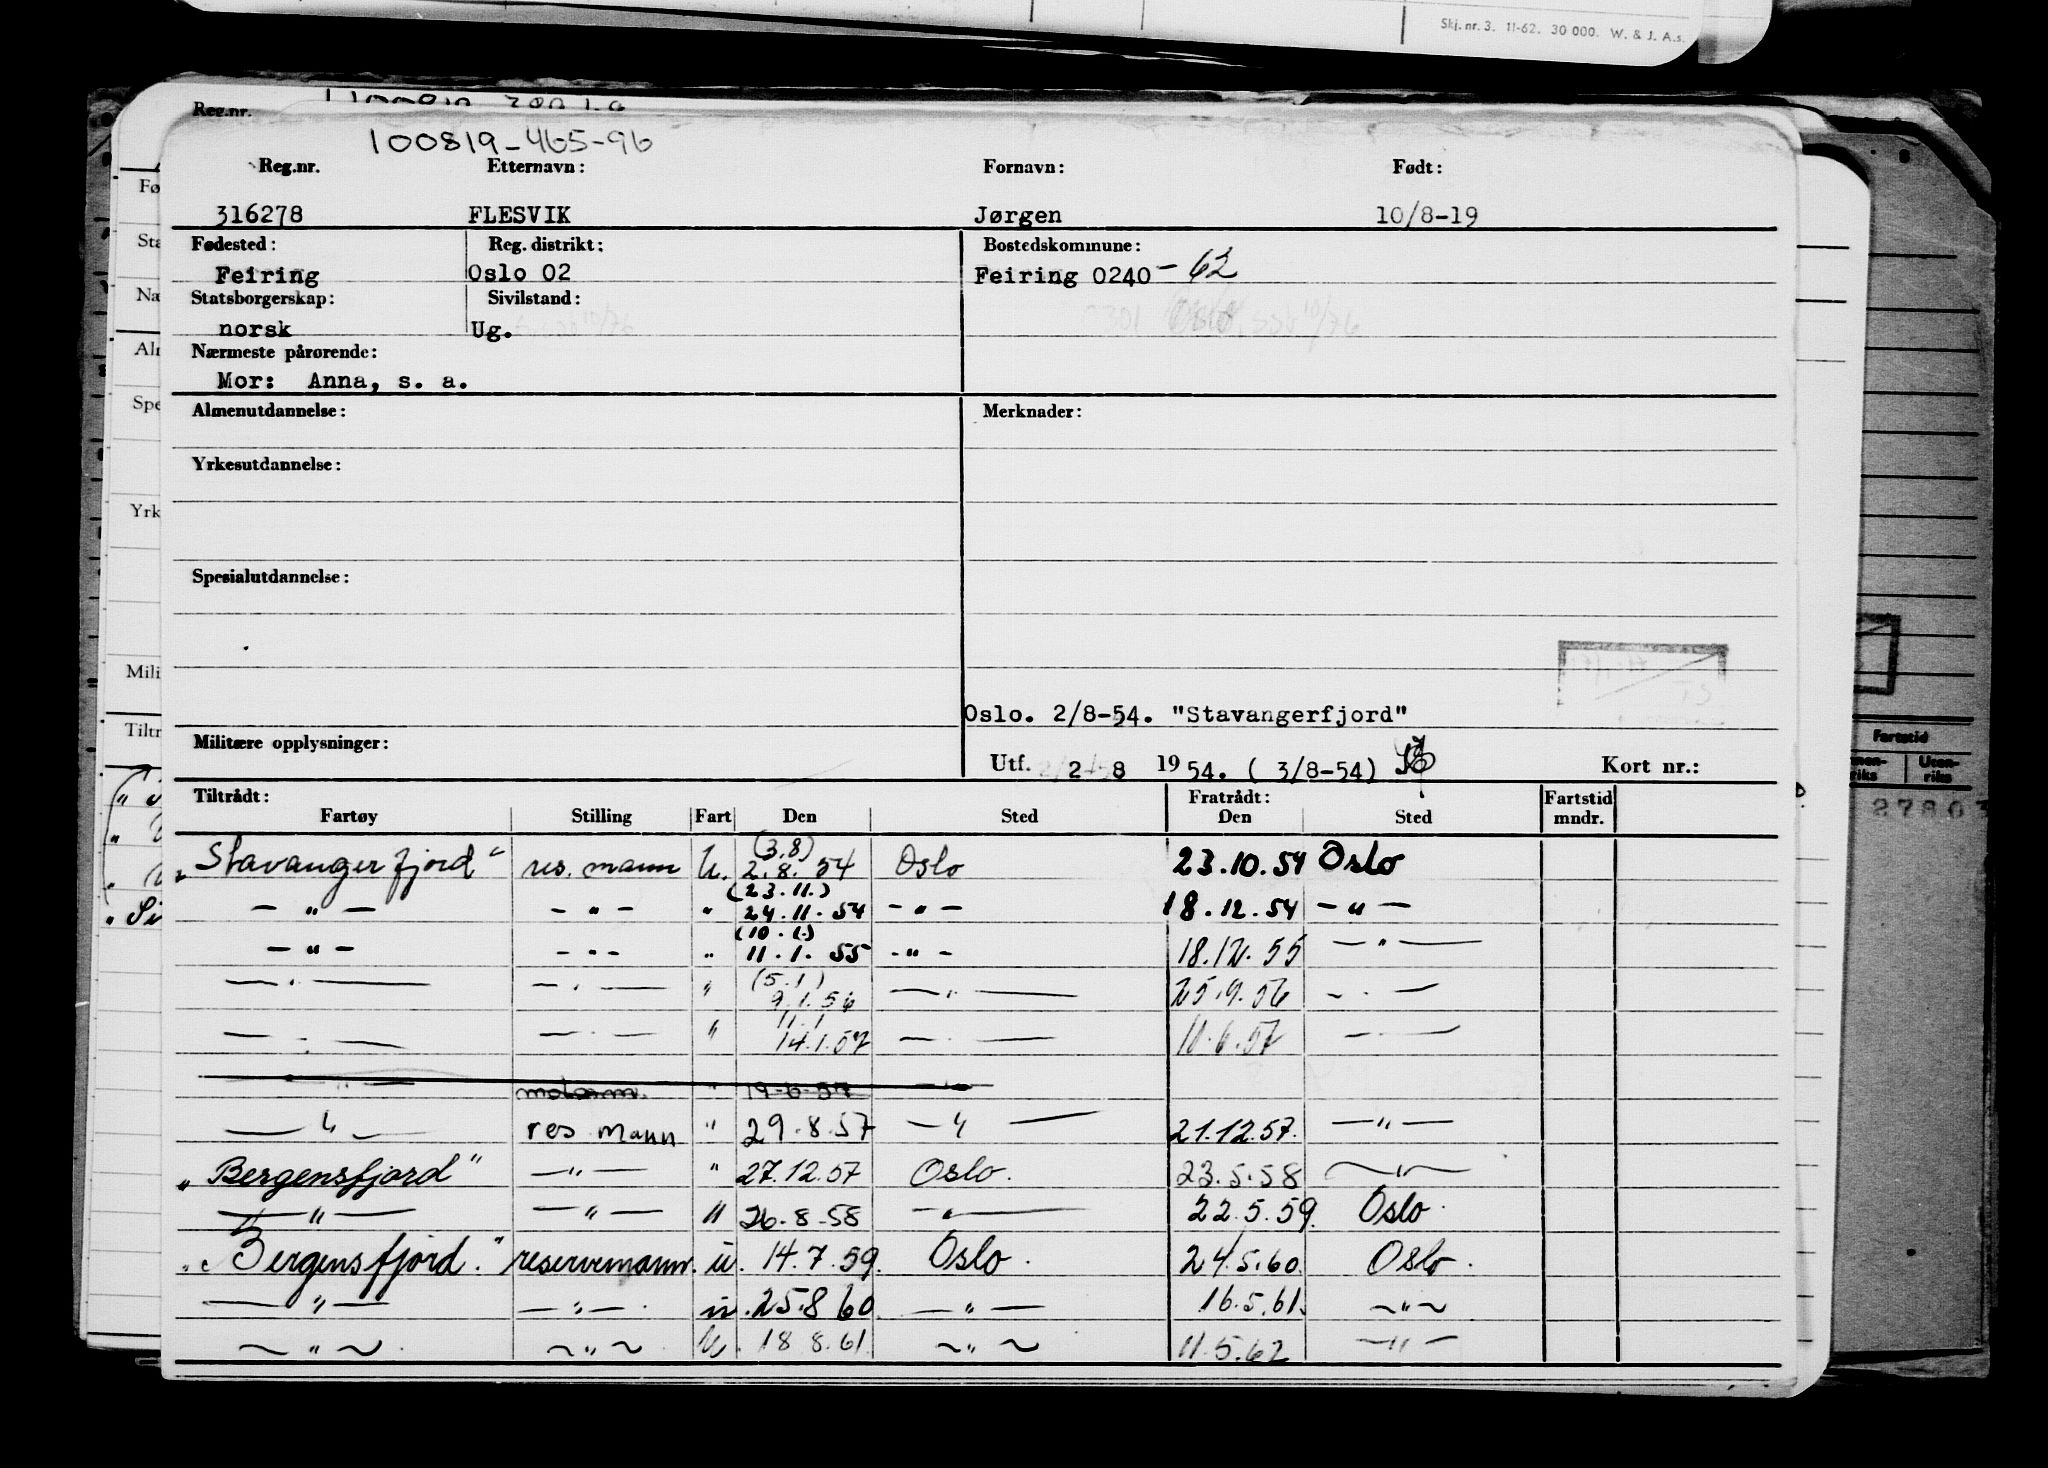 Skj. nr. 3. 11-62. 30 000. W. & J. A.s.
Reg.nr.
100819-465-96
Reg.nr. Etternavn: Fornavn: Født:
316278 FLESVIK Jørgen 10/8-19
Fødested: Reg. distrikt: Bostedskommune:
Feiring Oslo 02 Feiring 0240 - 62
Statsborgerskap: Sivilstand:
norsk Ug.
Nærmeste pårørende:
Mor: Anna, s. a.
Almenutdannelse: Merknader:
Yrkesutdannelse:
Spesialutdannelse:
Oslo. 2/8-54. "Stavangerfjord"
Militære opplysninger:
Utf. 2 8 1954. ( 3/8-54) Kort nr.:
Tiltrådt: Fratrådt: Fartstid
Fartøy Stilling Fart Den Sted Den Sted mndr.
(3.8)
"Stavangerfjord" res. mann U. 2.8.54 Oslo 23.10.54 Oslo
(23.11.)
— " — — " — " 24.11.54 — " — 18.12.54 — " —
(10.1.)
— " — — " — " 11.1.55 — " — 18.12.55 — " —
(5.1)
— " — — " — " 9.1.56 — " — 25.9.56 — " —
11.1
— " — — " — " 14.1.57 — " — 11.6.57 — " —
— " — motorm. " 19-6-57 — " —
— " — res mann " 29.8.57 — " — 21.12.57. — " —
"Bergensfjord" — " — " 27.12.57 Oslo. 23.5.58 — " —
— " — — " — " 26.8-58 — " — 22.5.59. Oslo.
"Bergensfjord." reservemann. u. 14.7.59. Oslo. 24.5.60. Oslo.
— " — — " — . u. 25.8 60. — " — 16.5.61. ~ " ~
~ " ~ . ~ " ~ . U. 18.8.61. ~ " ~ 11.5.62 — " —
Fartstid
27803